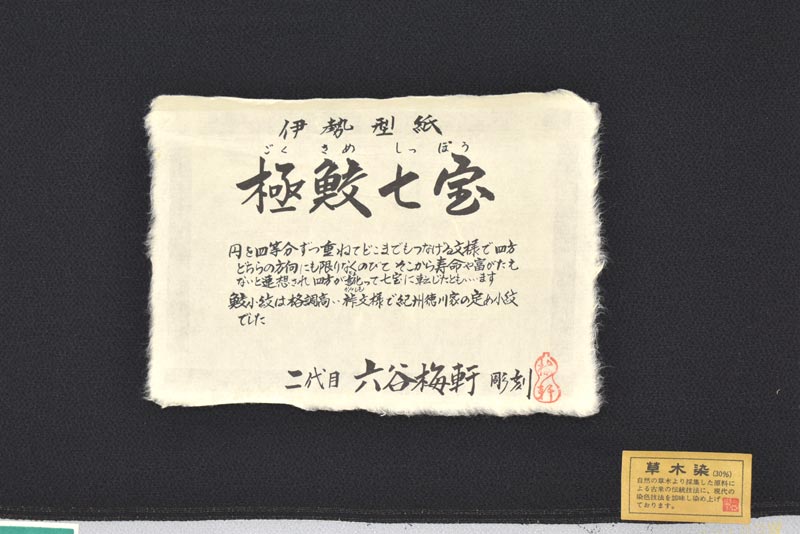 伊勢型紙
ごく さめ しっ ぽう
極鮫七宝
円を四等分ずつ重ねてどこまでもつなげる文様で四方
どちらの方向にも限りなくのびて そこから寿命や富がたえ
ないと連想され 四方が訛って七宝に転じたとも…ます
かみしも
鮫小紋は格調高い 裃文様で紀州徳川家の定め小紋
でした
二代目 六谷梅軒 彫刻
草木染(30%)
自然の草木より採集した原料に
よる古来の伝統技法に、現代の
染色技法を加味し染め上げ
ております。